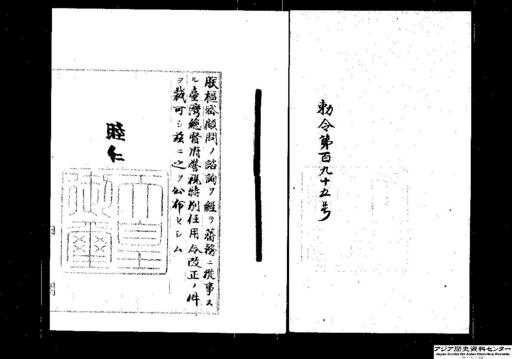 勅令第百九十五号
朕樞密顧問ノ諮詢ヲ經テ蕃務ニ從事ス
ル臺灣總督府警視特別任用令改正ノ件
ヲ裁可シ茲ニ之ヲ公布セシム
睦仁
アジア歴史資料センター
Japan Center for Asian Historical Records